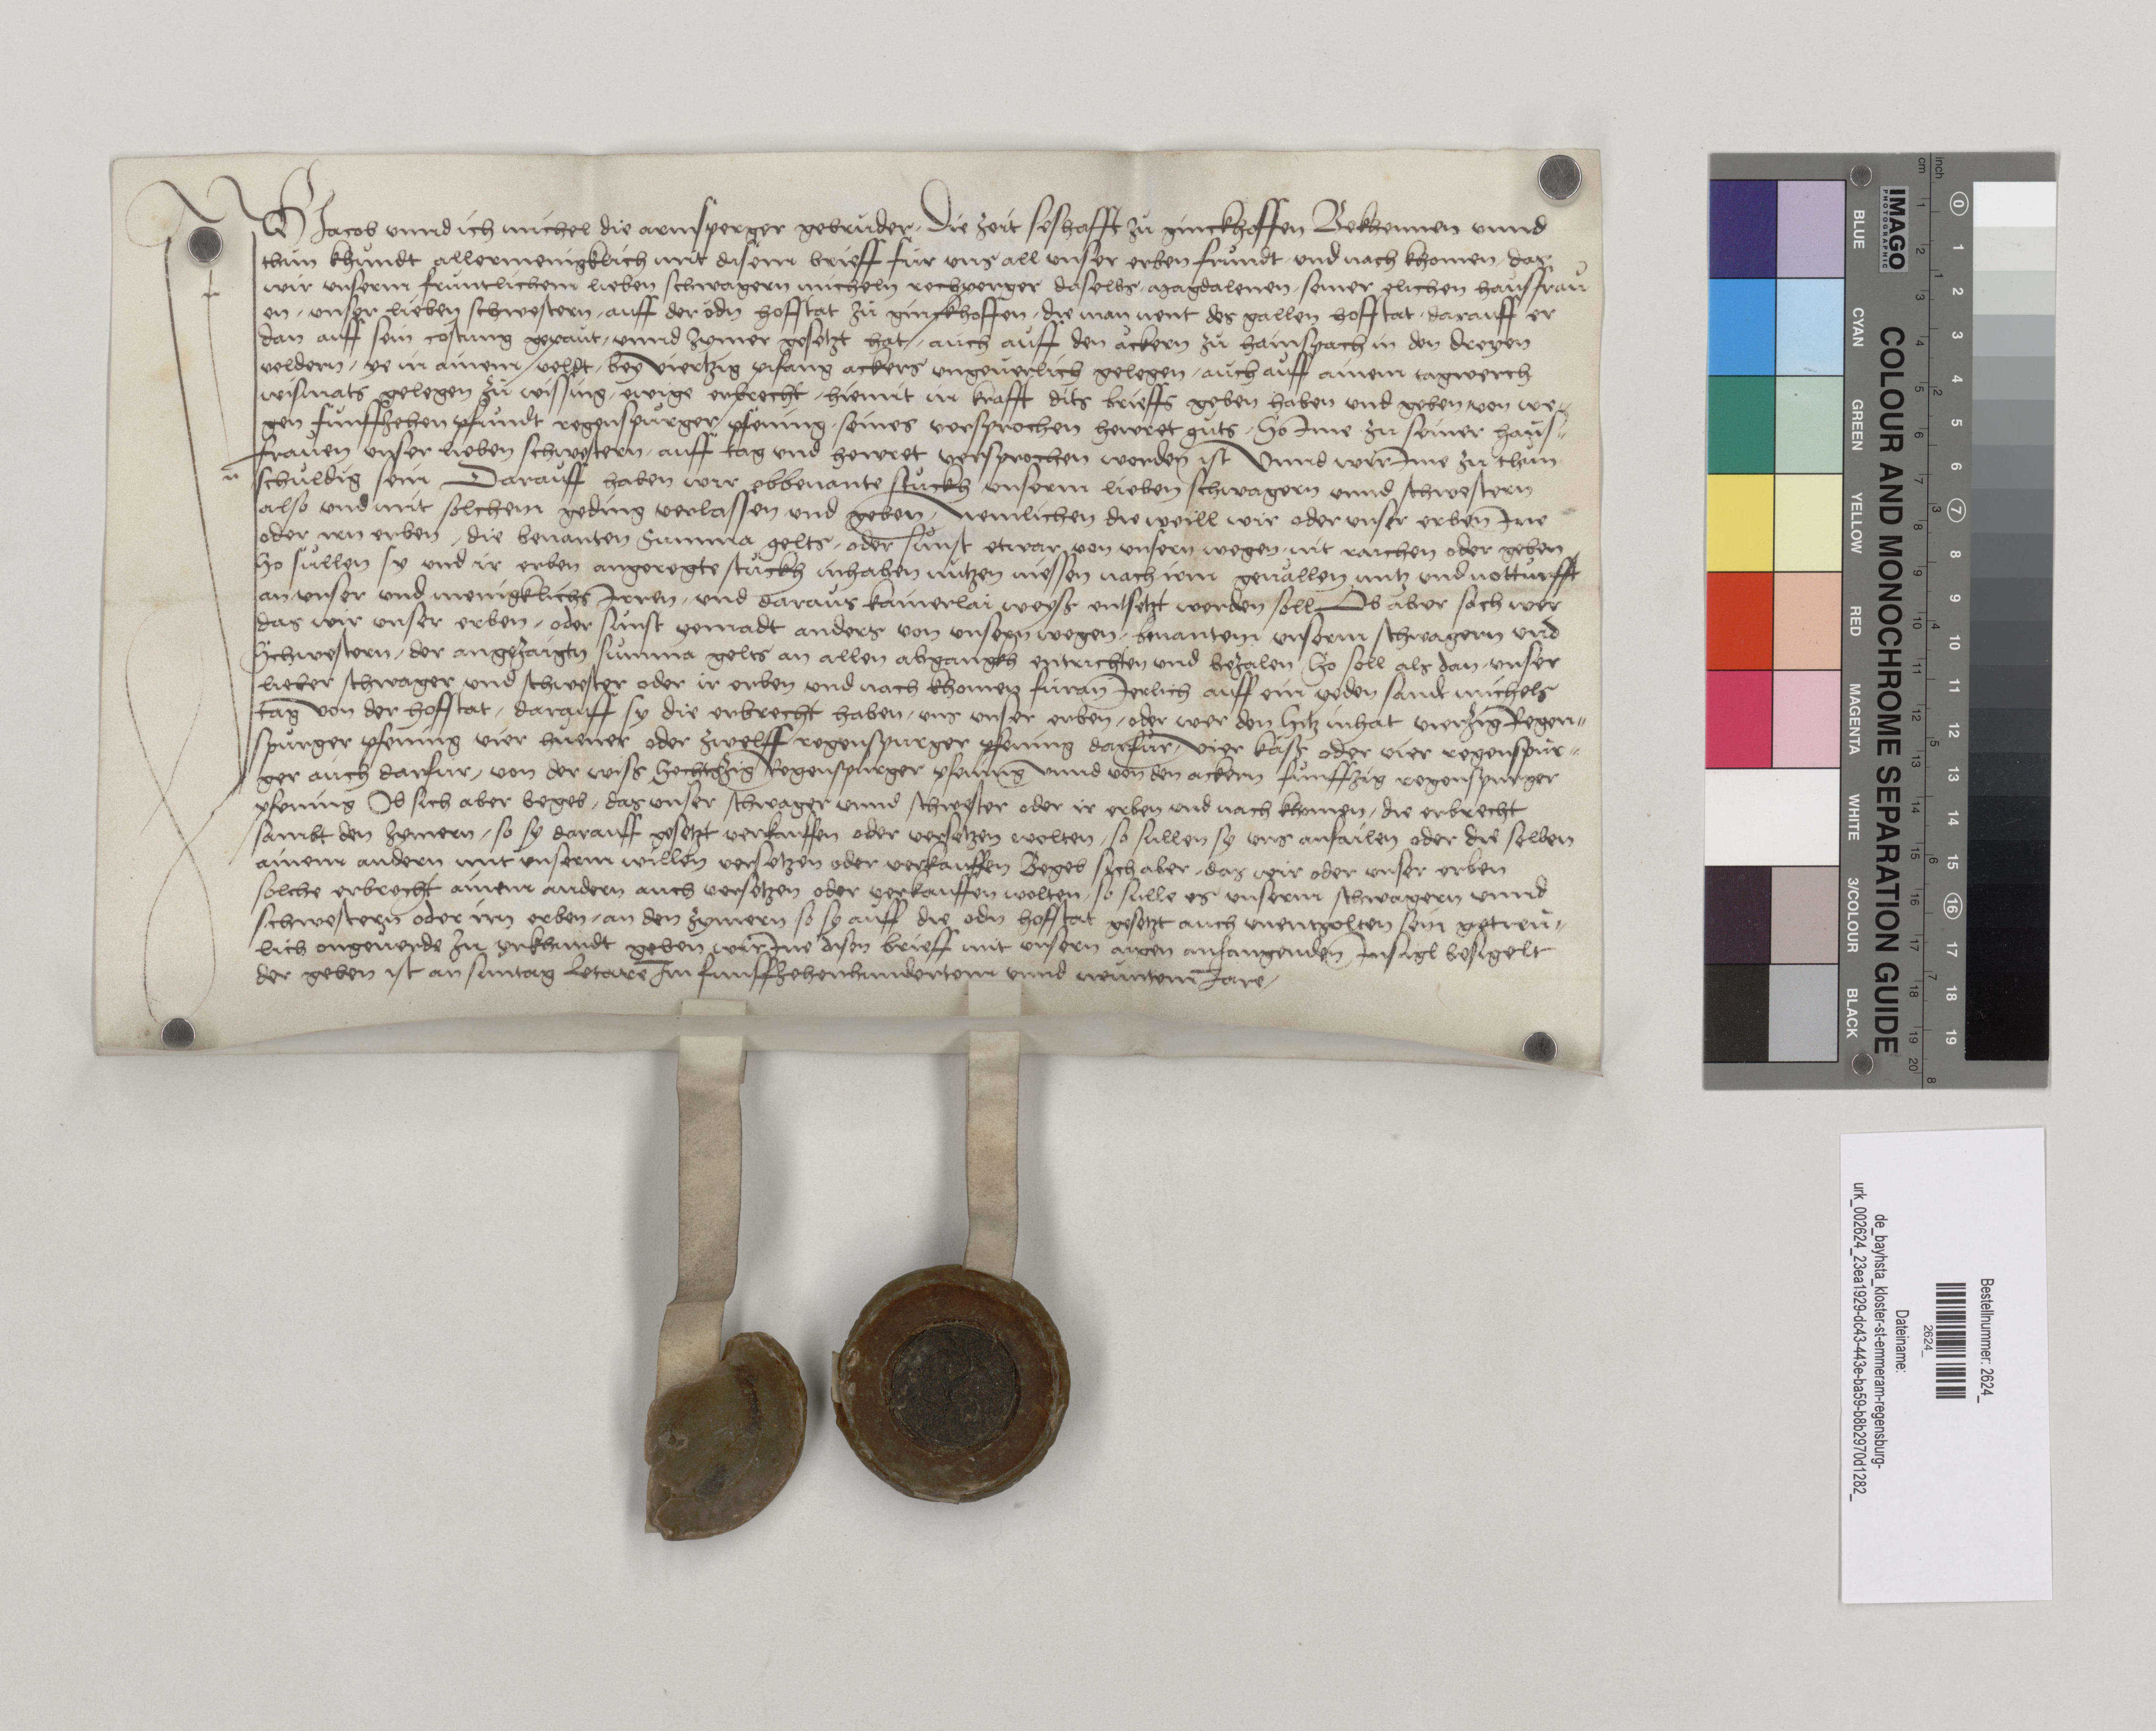 Ich Jacob unnd ich michel die armsperger gebruder, Die zeit seshafft zu ginckhoffen Bekhennen unnd
thun khundt allermenigklich mit disem brieff für uns all unser erben frundt und nach khomen, das
wir unserm fruntlichem lieben schwagern micheln rechperger daselbs, magdalenen, seiner elichen hausfrau
en, unser lieben schwestern, auff der odn hofftat zu ginckhoffen, die man nent des gallen hofftat, darauff er
dan auff sein costung geraut, unnd zymer gesetzt hat, auch auff den äckern zu hainspach in den dreyen
veldern, ye in ainem veldt, bey viertzig pifang ackers ungeverlich gelegen, auch auff ainem tagwerch
wismats gelegen zu wissing, ewige erbrecht, hiemit in krafft dits brieffs geben haben und geben, von we-
gen funffzehen pfundt regenspurger pfening, seines versprochen heyret guts, So Ime zu seiner haus-
frauen unser lieben schwestern, auff tag und heyret versprochen worden ist Unnd wir Ime zu thun
schuldig sein Darauff haben wir obbenante stuckh unserm lieben schwagern unnd schwestern
also und mit solchem geding verlassen und geben, nemlichen die weill wir oder unser erben Ime
oder irn erben, die benanten Summa gelts, oder sunst etwar von unsern wegen, nit raichen oder geben
So sullen sy und ir erben angeregte stuckh inhaben nutzen niessen nach irm gevallen nutz und notturfft
an unser und menigklichs Irren, und daraus kainerlai weyss entsetzt werden soll Ob aber sach wer
das wir unser erben, oder sunst yemadt anders von unsern wegen, benantem unserm schwagern und
Schwestern, der angezaigtn summa gelts an allen abgangkh entrichten und bezalen So soll als dan unser
lieber schwager und schwester oder ir erben und nach khomen furan Jerlich auff ein yeden sandt michels
tag von der hofftat, darauff sy die erbrecht haben, uns unser erben, oder wer den Sitz inhat vierzig Regen-
spurger pfening vier huener oder zwelff regenspurger pfening darfur, vier käss oder vier regenspur-
ger auch darfur, von der wiss Sechtzig Regenspurger pfening unnd von den ackern funffzig regenspurger
pfening Ob sich aber begeb, das unser schwager unnd schwester oder ir erben und nach khomen, die erbrecht
sambt den zymern, so sy darauff gesetzt verkauffen oder versetzen wolten, so sullen sy uns anfailen oder die selben
ainem andern mit unserm willen versetzen oder verkauffen Begeb sych aber, das wir oder unser erben
solche erbrecht ainem andern auch versetzen oder verkauffen wolten, so sulle es unserm schwagern unnd
schwestern oder irn erben, an den zymern so sy auff die odn hofftat gesetzt auch unentgolten sein getreu-
lich ongeverde Zu urkhundt geben wir Ime disen brieff mit unsern aigen anhangenden Insigl besigelt
der geben ist an suntag Letare Im funffzehenhundertem unnd neuntem Jare,
IMAGO
PHOTOGRAPHIC
COLOUR AND MONOCHROME SEPARATION GUIDE
BLUE
CYAN
GREEN
YELLOW
RED
MAGENTA
WHITE
3/COLOUR
BLACK
cm 1 2 3 4 5 6 7 8 9 10 11 12 13 14 15 16 17 18 19 20
inch 1 2 3 4 5 6 7 8
0 1 2 3 4 5 6 7 8 9 10 11 12 13 14 15 16 17 18 19
Bestellnummer: 2624_
2624_
Dateiname:
de_bayhsta_kloster-st-emmeram-regensburg-
urk_002624_23ea1929-dc43-443e-ba59-b8b2970d1282_